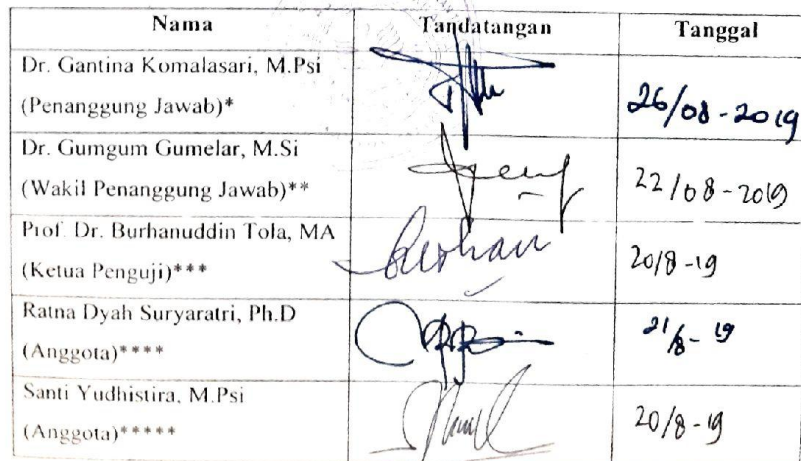 Nama Tandatangan Tanggal
Dr. Gantina Komalasari, M.Psi
(Penanggung Jawab)* 26/08-2019
Dr. Gumgum Gumelar, M.Si
(Wakil Penanggung Jawab)** 22/08-2019
Prof. Dr. Burhanuddin Tola, MA
(Ketua Penguji)*** 20/8-19
Ratna Dyah Suryaratri, Ph.D
(Anggota)**** 21/8-19
Santi Yudhistira, M.Psi
(Anggota)***** 20/8-19